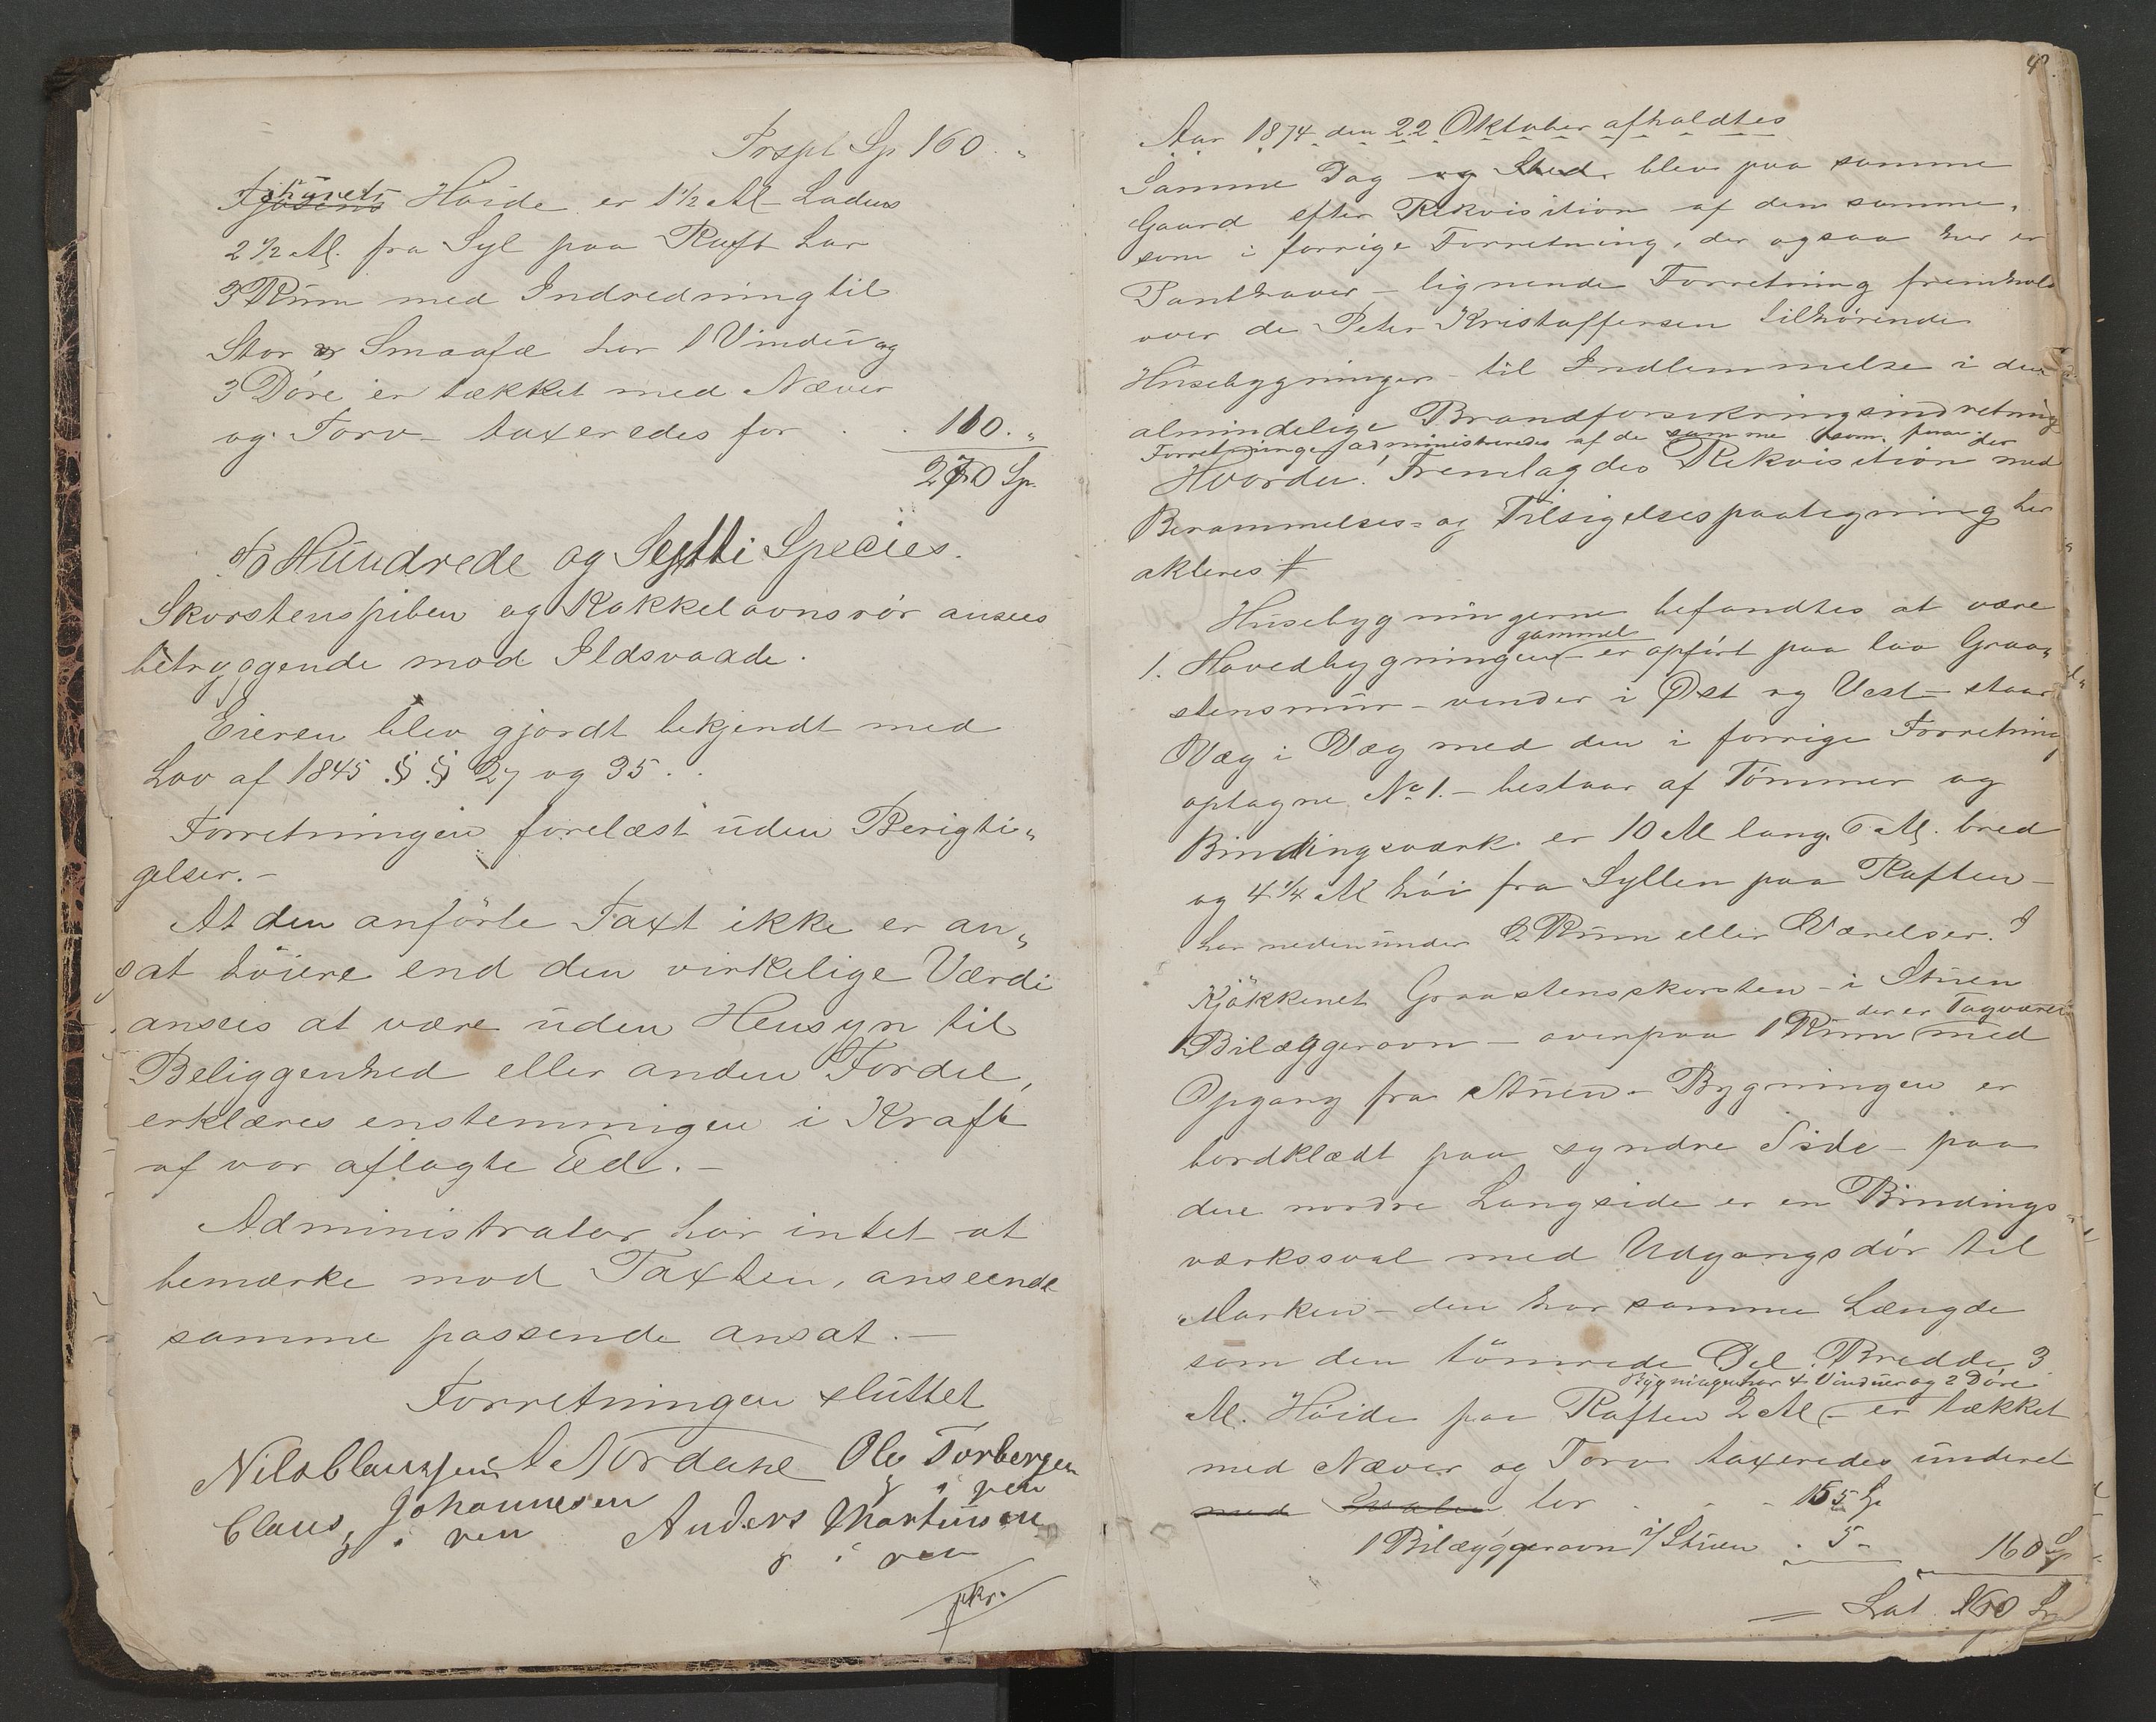 Trspt Sp 160. "
Fjøsens Fjøsets Høide er 1½ Al Ladens
2½ Al. fra Syl paa Raft har
3 Rum med Indredning til
Stor og Smaafæ har 1 Vindu og
3 Døre er tækket med Næver
og Torv - taxeredes for . . 110. "
270 Sp.
To Hundrede og Sytti Species.
Skorstenspiben og Kakkelovnsrør ansees
betryggende mod Ildsvaade.
Eieren blev gjordt bekjendt med
Lov af 1845 §§ 27 og 35.
Forretningen forelæst uden Berigti„
gelser. -
At den anførte Taxt ikke er an„
sat høiere end den virkelige Værdi
ansees at være uden Hensyn til
Beliggenhed eller anden Fordel,
erklæres enstemmigen i Kraft
af vor aflagte Ed. -
Administrator har intet at
bemærke mod Taxten, anseende
samme passende ansat. -
Forretningen sluttet
Nils Claussen A Nordahl Ole Torbergsen
i pen
Claus Johannesen Anders Martinsen
i pen i pen
4.
Aar 1874 den 22 Oktober afholdtes
Samme Dag og Sted blev paa samme
Gaard efter Rekvisition af den samme,
som i forrige Forretning, der ogsaa her er
Panthaver - lignende Forretning fremhold
over de Peter Kristoffersen tilhørende
Husebygninger - til Indlemmelse i den
almindelige Brandforsikringsindretning
Forretningen administreredes af de samme som paa der
Hvorda! Fremlagdes Rekvisition med
Berammelses- og Tilsigelsespaategning her
akteres #
Husebygningerne befandtes at være
gammel
1. Hovedbygningen - er opført paa lav Graa„
stensmur - vender i Øst og Vest - staar
Væg i Væg med den i forrige Forretning
optagne No 1. - bestaar af Tømmer og
Bindingsværk er 10 Al lang, 6 Al. bred
og 4¼ Al høi fra Syllen paa Raften -
har nedenunder 2 Rum eller Værelser. I
Kjøkkenet Graastensskorsten - i Stuen
der er Tagværel
1 Bilæggerovn - ovenpaa 1 Rum med
Opgang fra Stuen - Bygningen er
bordklædt paa syndre Side - paa
den nordre Langside er en Bindings„
værkssval med Udgangsdør til
Marken - den har samme Længde
som den tømrede Del. Bredde 3
Bygningen har 4 Vinduer og 2 Døre
Al. Høide paa Raften 2 Al - er tækket
med Næver og Torv taxeredes underet
med Svalen for . - - 155 Sp
1 Bilæggerovn i Stuen . 5 - 160 Sp
Lat 160 Sp